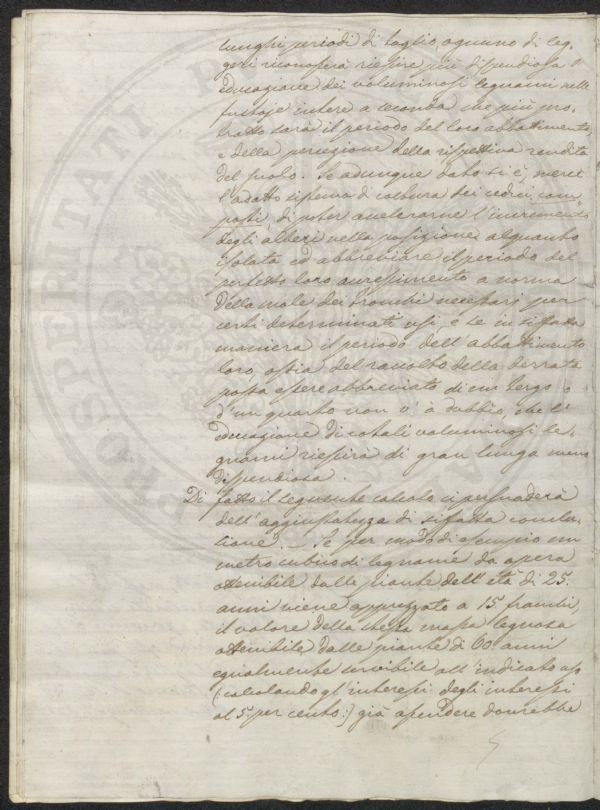 lunghi periodi di taglio, ognuno di leg-
geri riconoscerà riescire più dispendiosa l'
educazione dei voluminosi legnami nelle
fustaje intere a seconda che più pro-
tratto sarà il periodo del loro abbattimento,
e della percezione della rispettiva rendita
del suolo. Se adunque dato si è, mercè
l'adatto sistema di coltura dei cedui com-
posti, di poter accelerarne l'incremento
degli alberi nella posizione alquanto
isolata ed abbreviare il periodo del
perfetto loro accrescimento a norma
della mole dei tronchi necessarj per
certi determinati usi, e se in siffatta
maniera il periodo dell'abbattimento
loro, ossia del raccolto della derrata
possa essere abbreviato di un terzo o
d'un quarto non v'à dubbio, che l'
educazione di cotali voluminosi le-
gnami riescirà di gran lunga meno
dispendiosa.
Di fatto il seguente calcolo ci persuaderà
dell'aggiustatezza di siffatta conclu-
sione. Se per modo di esempio un
metro cubico di legname da opera
ottenibile dalle piante dell'età di 25.
anni viene apprezzato a 15. franchi,
il valore della stessa massa legnosa
ottenibile dalle piante di 60 anni
egualmente servibile all'indicato uso
(: calcolando gl'interessi degli interessi
al 5. per cento :) già ascendere dovrebbe
PROSPERITATI